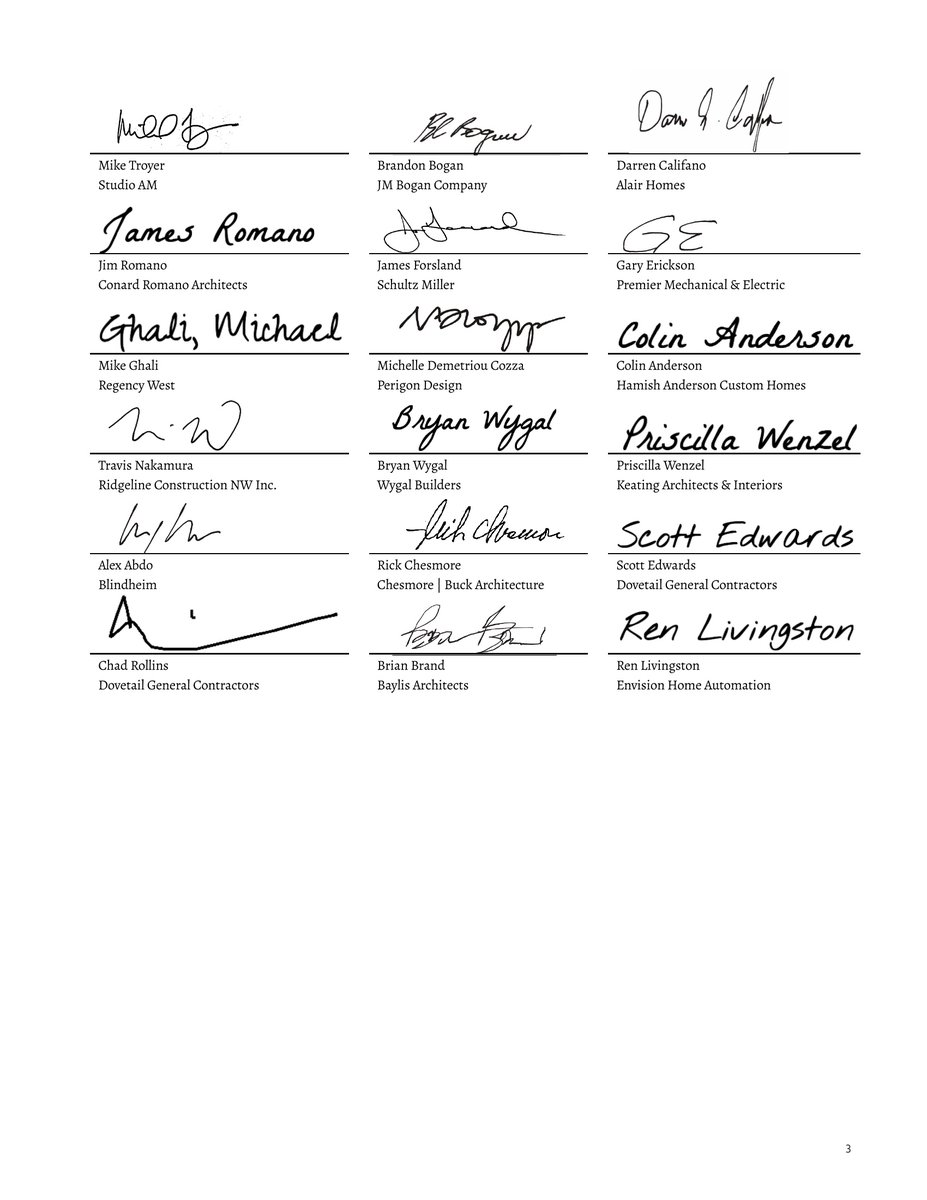 Mike Troyer
Studio AM
Brandon Bogan
JM Bogan Company
Darren Califano
Alair Homes
James Romano
Jim Romano
Conard Romano Architects
James Forsland
Schultz Miller
GE
Gary Erickson
Premier Mechanical & Electric
Ghali, Michael
Mike Ghali
Regency West
Michelle Demetriou Cozza
Perigon Design
Colin Anderson
Colin Anderson
Hamish Anderson Custom Homes
Travis Nakamura
Ridgeline Construction NW Inc.
Bryan Wygal
Bryan Wygal
Wygal Builders
Priscilla Wenzel
Priscilla Wenzel
Keating Architects & Interiors
Alex Abdo
Blindheim
Rick Chesmore
Chesmore | Buck Architecture
Scott Edwards
Scott Edwards
Dovetail General Contractors
Chad Rollins
Dovetail General Contractors
Brian Brand
Baylis Architects
Ren Livingston
Ren Livingston
Envision Home Automation
3